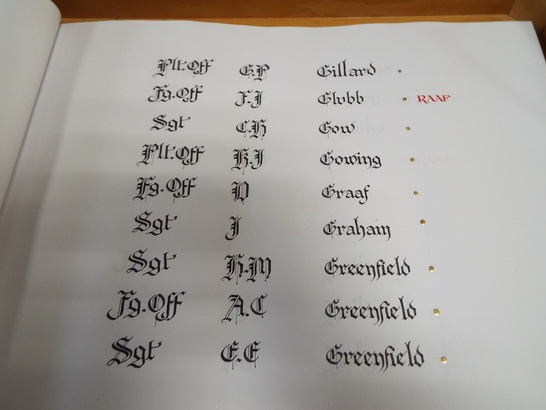 Plt.Off G.P Gillard
Fg.Off F.J Glubb RAAF
Sgt C.H Gow
Plt.Off H.J Gowing
Fg.Off D Graaf
Sgt J Graham
Sgt H.M Greenfield
Fg.Off A.C Greenfield
Sgt E.E Greenfield